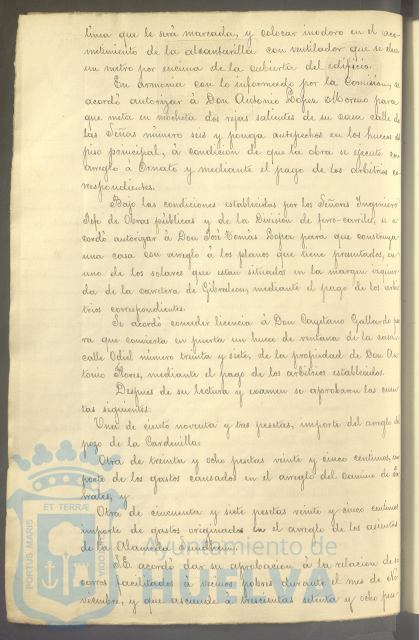 línea que le será marcada, y colocar inodoro en el aco-
metimiento de la alcantarilla con ventilador que se eleve
un metro por encima de la cubierta del edificio.
En armonía con lo informado por la Comision, se
acordó autorizar á Don Antonio Lopez Moreno para
que meta en mocheta dos rejas salientes de su casa calle de
las Señas número seis y ponga antepechos en los huecos del
piso principal, á condición de que la obra se ejecute con
arreglo á Ornato y mediante el pago de los arbitrios co-
rrespondientes.
Bajo las condiciones establecidas por los Señores Ingeniero
Jefe de Obras públicas y de la Division de ferro-carriles, se a-
cordó autorizar á Don José Tomás Lopez para que construya
una casa con arreglo á los planos que tiene presentados, en
uno de los solares que estan situados en la margen izquier-
da de la carretera de Gibraleon, mediante el pago de los arbi-
trios correspondientes.
Se acordó conceder licencia á Don Cayetano Gallardo pa-
ra que convierta en puerta un hueco de ventana de la casa
calle Odiel número treinta y siete, de la propiedad de Don An-
tonio Flores, mediante el pago de los arbitrios establecidos.
Despues de su lectura y examen se aprobaron las cuen-
tas siguientes:
Una de ciento noventa y tres pesetas, importe del arreglo del
pozo de la Cardenilla.
Otra de treinta y ocho pesetas veinte y cinco centimos, im-
porte de los gastos causados en el arreglo del camino de
y
Otra de cincuenta y siete pesetas veinte y cinco centimos
importe de gastos originados en el arreglo de los asientos
de la Alameda Sundheim.
SE acordó dar su aprobacion á la relacion de so-
corros facilitados á vecinos pobres durante el mes de No-
viembre, y que asciende á trescientas setenta y ocho pese
PORTUS MARIS ET TERRÆ CUSTODIA
Ayuntamiento de
HUELVA